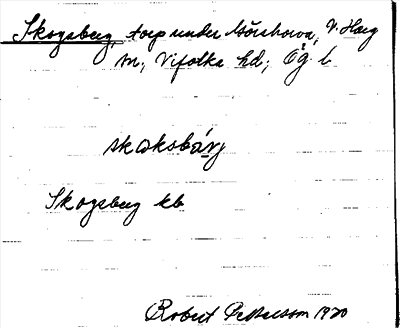 Skogsberg, torp under Mörshorva, V. Harg
sn; Vifolka hd; Ög. l.
skɷksbárj
Skogsberg kb
Robert Pettersson 1920